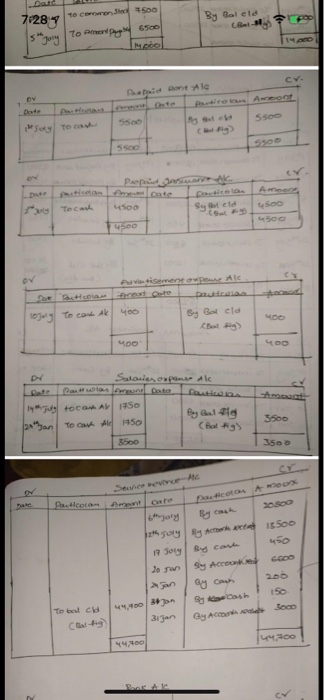 Date
7:28
To common stock 7500 By Bal c/d
5th July To Amount payable 6500 (Bal-fig)
14,000 14,000
Prepaid Rent A/c
Dr Cr.
Date Particulars Amount Date Particulars Amount
1st July To cash 5500 By Bal c/d 5500
(Bal fig)
5500 5500
Prepaid Insurance A/c
Dr Cr.
Date Particulars Amount Date Particulars Amount
July To cash 4500 By Bal c/d 4500
(Bal fig)
4500 4500
Advertisement expense A/c
Dr Cr
Date Particulars Amount Date Particulars Amount
10 July To cash A/c 400 By Bal c/d 400
(Bal fig)
400 400
Salaries expense A/c
Dr Cr
Date Particulars Amount Date Particulars Amount
14th July To cash A/c 1750 By Bal c/d 3500
(Bal fig)
Jan To cash A/c 1750
3500 3500
Service revenue A/c
Dr Cr
Date Particulars Amount Date Particulars Amount
6th July By cash
12th July By Account 18500
17 July By cash 450
20 Jan By Account 6600
Jan By cash 200
To bal c/d 44,700 Jan By cash 150
(Bal-fig) 31 Jan By Account 3000
44,700 44,700
Bank A/c
Dr Cr